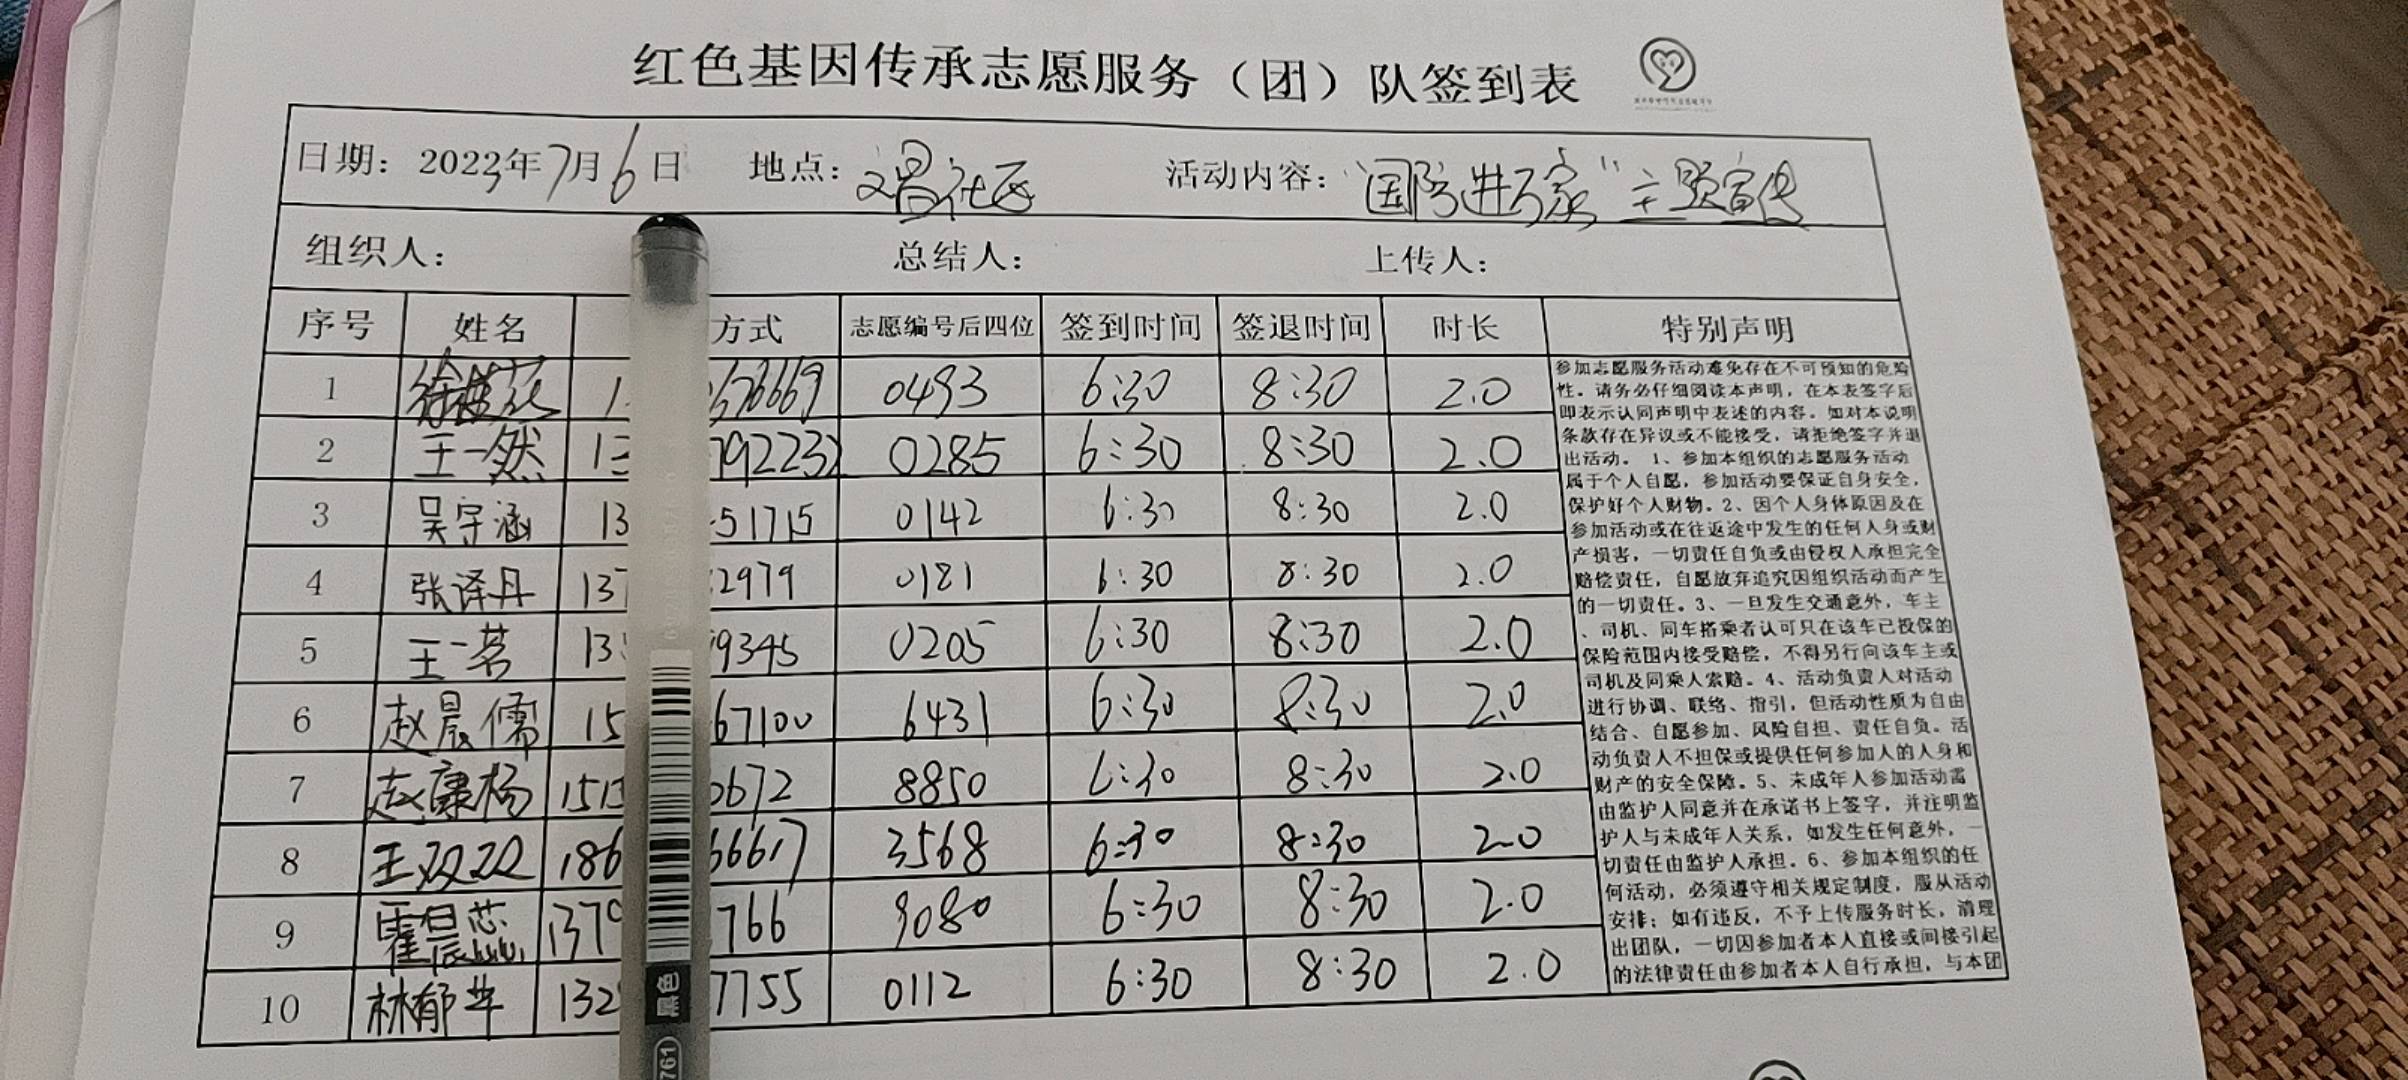 红色基因传承志愿服务（团）队签到表
日期：2023年7月6日 地点：文昌社区 活动内容：“国防进万家”主题宣传
组织人： 总结人： 上传人：
序号 姓名 方式 志愿编号后四位 签到时间 签退时间 时长 特别声明
1 0493 6:30 8:30 2.0
2 王一然 792232 0285 6:30 8:30 2.0
3 吴宇涵 13 51715 0142 6:30 8:30 2.0
4 张译丹 137 2979 0181 6:30 8:30 2.0
5 王一茗 13 9345 0205 6:30 8:30 2.0
6 赵晨儒 15 67100 6431 6:30 8:30 2.0
7 赵康杨 151 0672 8850 6:30 8:30 2.0
8 王双双 186 66617 3568 6:30 8:30 2.0
9 霍晨芯 137 766 9080 6:30 8:30 2.0
10 林郁苹 132 7755 0112 6:30 8:30 2.0
参加志愿服务活动难免存在不可预知的危险
性。请务必仔细阅读本声明，在本表签字后
即表示认同声明中表述的内容。如对本说明
条款存在异议或不能接受，请拒绝签字并退
出活动。 1、参加本组织的志愿服务活动
属于个人自愿，参加活动要保证自身安全，
保护好个人财物。2、因个人身体原因及在
参加活动或在往返途中发生的任何人身或财
产损害，一切责任自负或由侵权人承担完全
赔偿责任，自愿放弃追究因组织活动而产生
的一切责任。3、一旦发生交通意外，车主
、司机、同车搭乘者认可只在该车已投保的
保险范围内接受赔偿，不得另行向该车主或
司机及同乘人索赔。4、活动负责人对活动
进行协调、联络、指引，但活动性质为自由
结合、自愿参加、风险自担、责任自负。活
动负责人不担保或提供任何参加人的人身和
财产的安全保障。5、未成年人参加活动需
由监护人同意并在承诺书上签字，并注明监
护人与未成年人关系，如发生任何意外，一
切责任由监护人承担。6、参加本组织的任
何活动，必须遵守相关规定制度，服从活动
安排；如有违反，不予上传服务时长，清理
出团队，一切因参加者本人直接或间接引起
的法律责任由参加者本人自行承担，与本团
黑色
761